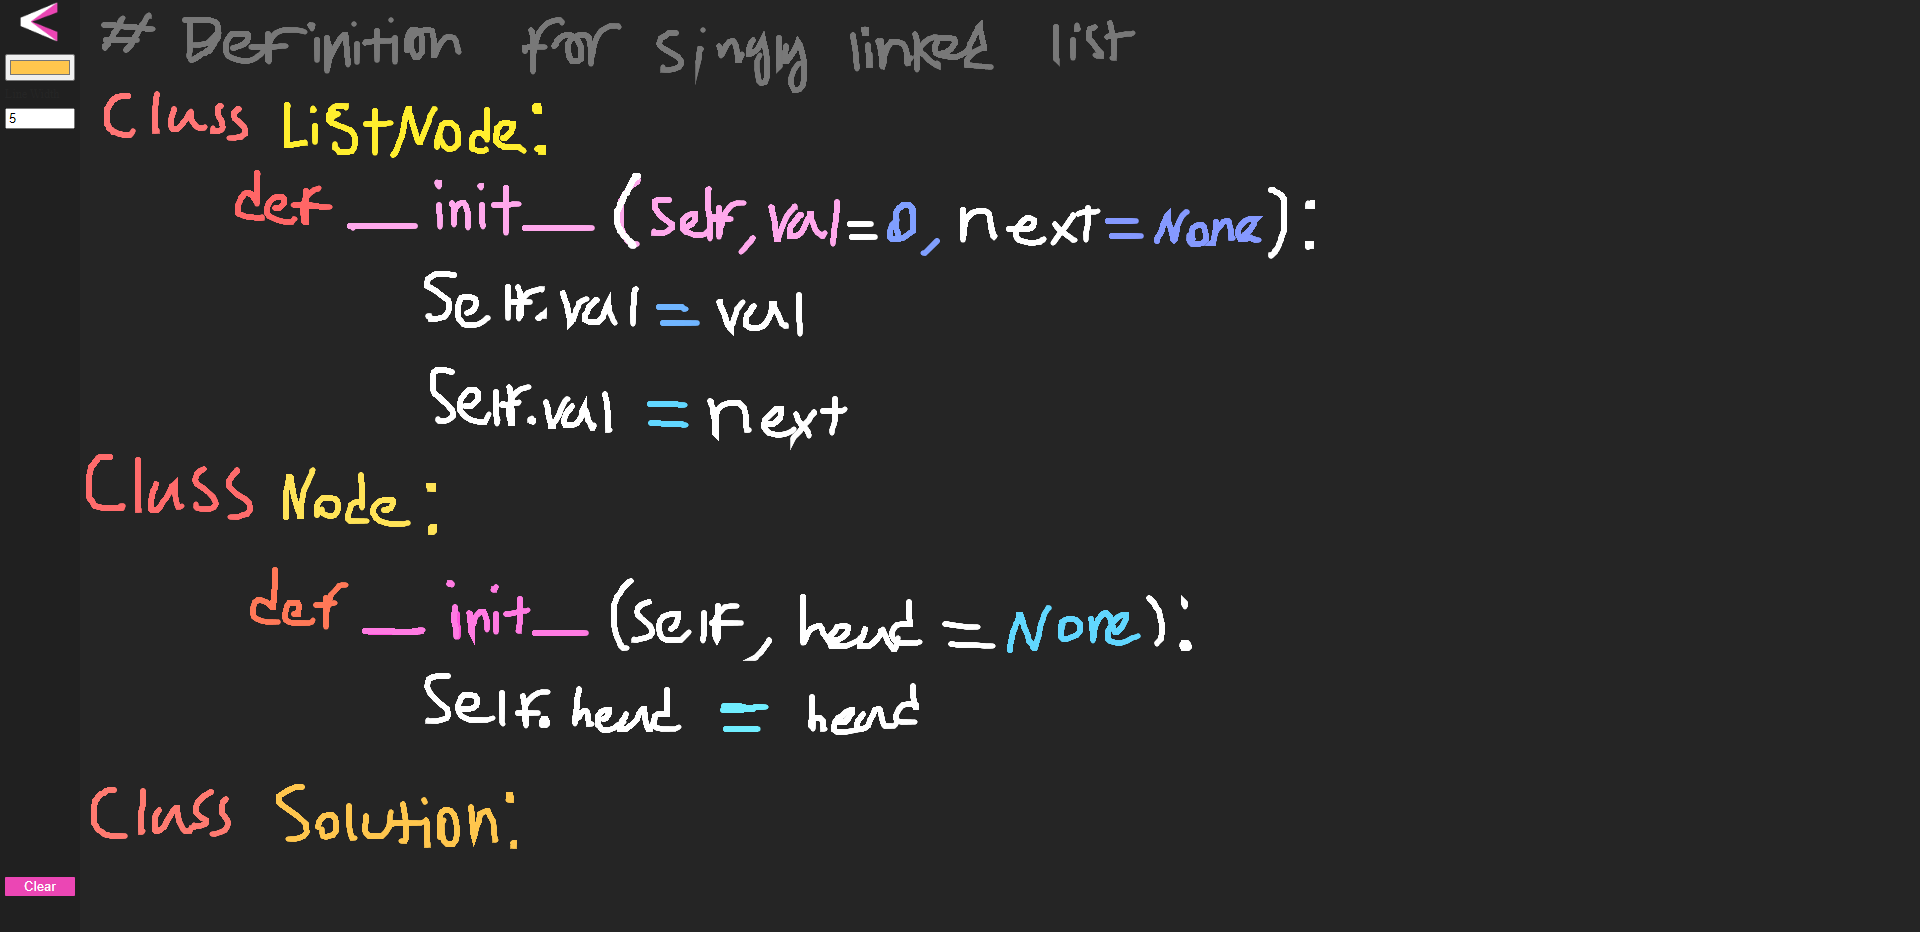 5
# Definition for singly linked list
Class ListNode:
def __init__(self, val=0, next=None):
Self.val = val
Self.val = next
Class Node:
def __init__(self, head=None):
Self.head = head
Class Solution:
Clear